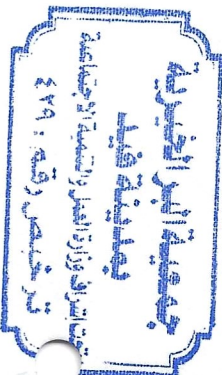 جمعية البر الخيرية
بفيد
تحت إشراف وزارة العمل والتنمية الاجتماعية
ترخيص رقم : ٤٢٩